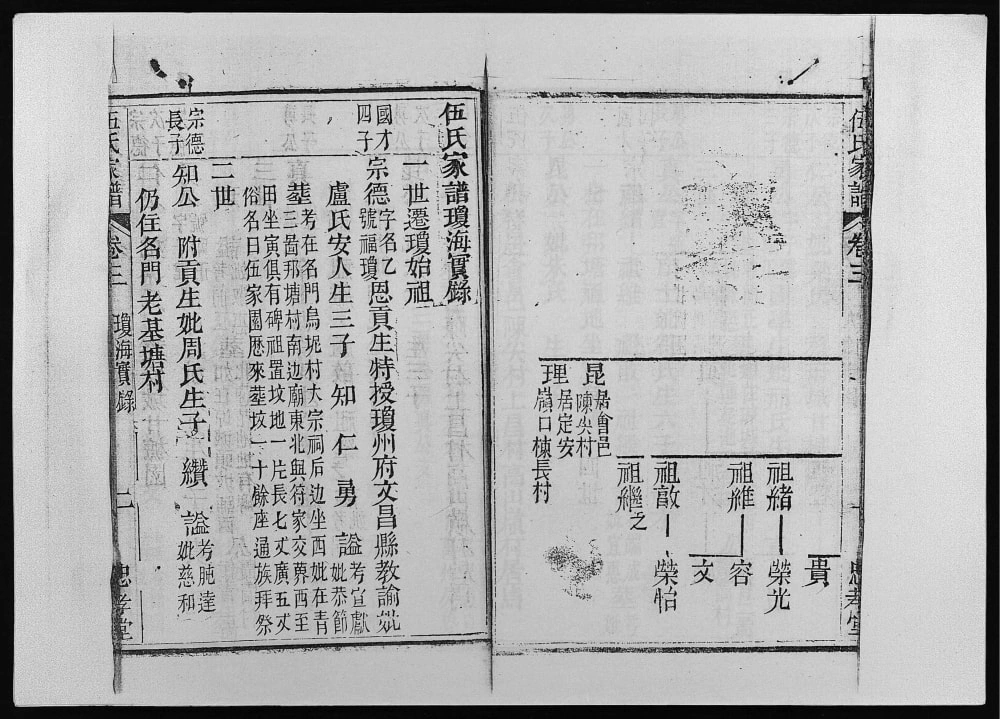 伍氏家譜
卷三
一
忠孝堂
貴
祖緒 榮光
祖維 容
文
祖敵 榮怡
祖繼之
昆 居會邑陳尖村
理 居定安嶺口棟長村
伍氏家譜瓊海實錄
一世遷瓊始祖
國才四子
宗德 字名乙號福瓊 恩貢生特授瓊州府文昌縣教諭妣
盧氏安人生三子 知 仁 勇 謚 考宣獻妣恭節
塟 考在名門鳥坭村大宗祠后边坐西妣在青
三箇那塘村南边廟東北與符家交界西至
田坐寅俱有碑祖置坟地一片長七丈廣五丈
俗名曰伍家園歷來塟坟一十餘座通族拜祭
二世
宗德長子
知公 附貢生妣周氏生子 纘 謚 考肫達妣慈和
仍住名門老基塘村
伍氏家譜
卷三
瓊海實錄
二
忠孝堂